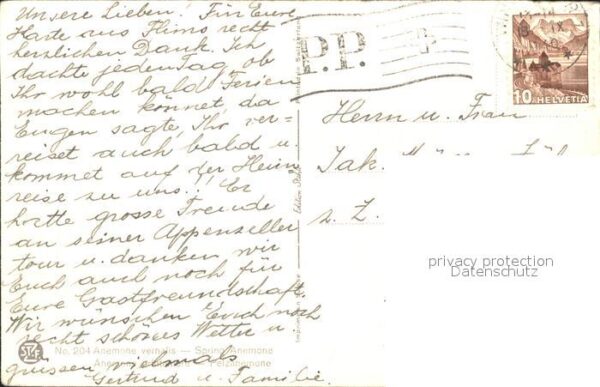 Unsere Lieben! Für Eure
Karte aus Flims recht
herzlichen Dank. Ich
dachte jeden Tag, ob
Ihr wohl bald Ferien
machen könnet, da
Eugen sagte, Ihr ver=
reiset auch bald u.
kommet auf der Heim
reise zu uns!! Er
hatte grosse Freude
an seiner Appenzeller
tour u. danken wir
Euch auch noch für
Eure Gastfreundschaft.
Wir wünschen Euch noch
recht schönes Wetter u.
grüssen vielmals
Gertrud u. Familie.
No. 204 Anemone vernalis — Spring Anemone
Pelzanemone
P.P.
10 HELVETIA
Herrn u. Frau
Jak.
z. Z.
privacy protection
Datenschutz